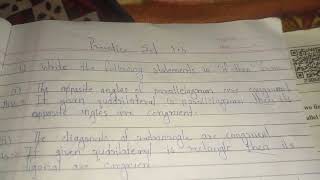 Practice Set 3.3
1) Write the following statements in 'if-then' form
i) The opposite angles of parallelogram are congruent
Ans: If given quadrilateral is parallelogram then its
opposite angles are congruent.
ii) The diagonals of rectangle are congruent
If given quadrilateral is rectangle then its
are congruent